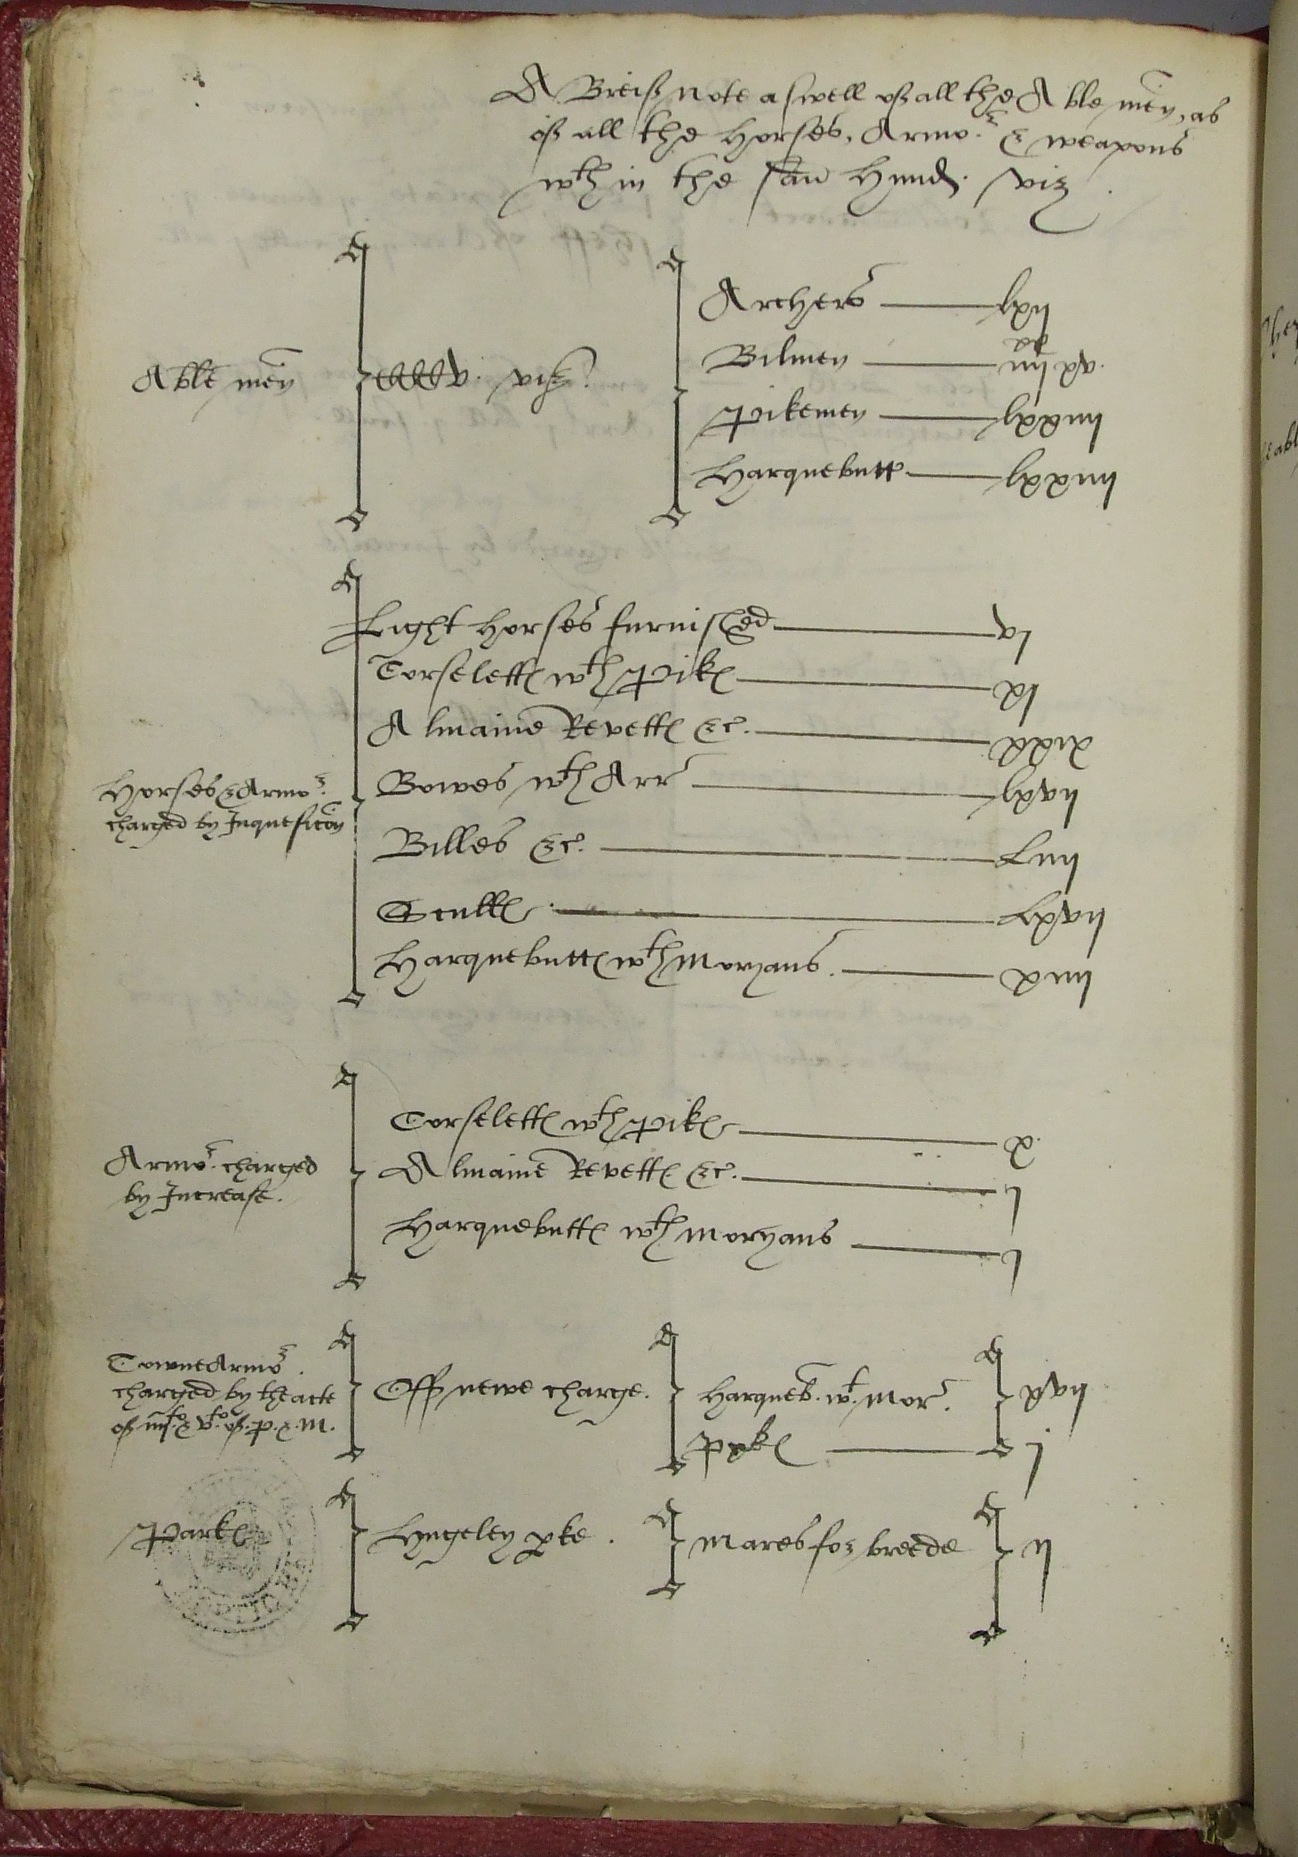 A Breif note aswell of all the Able men, as
of all the Horses, Armor & weapons
wth in the said Hundr. viz.
Able men
CCCv. viz
Archers lxij
Bilmen iiij xx xv.
Pikemen lxxiiij
Harquebutt lxxiiij
Horses & Armor
charged by Inquesicon
Light horses furnished vj
Corselett wth Pik xj
Almaine Revett &c. xxix
Bowes wth Arr lxvij
Billes &c. Liiij
Sculls Lxvij
Harquebutt wth Moryans. xiiij
Armor charged
by Increase.
Corselett wth Pik x.
Almaine Revett &c. j
Harquebutt wth moryans j
Towne Armor
charged by the acte
of iiijto & vto of. P. & M.
Off newe charge.
Harqueb. wt. Mor. xvij
Pyk j
Park
pke.
Mares for breede ij